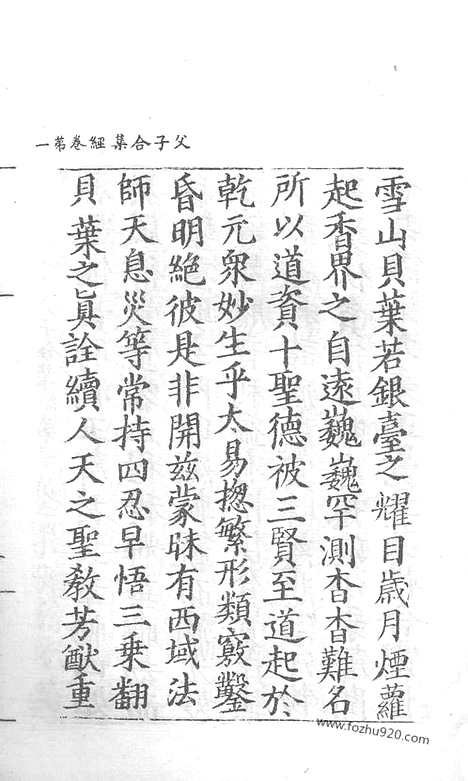 父子合集經卷苐一
雪山貝葉若銀臺之耀目歳月煙蘿
起香界之自遠巍巍罕測杳杳難名
所以道資十聖德被三賢至道起於
乾元衆妙生乎太易揔繁形類竅鑿
昏明絶彼是非開兹蒙昧有西域法
師天息災等常持四忍早悟三乗翻
貝葉之眞詮續人天之聖教芳猷重
www.fozhu920.com